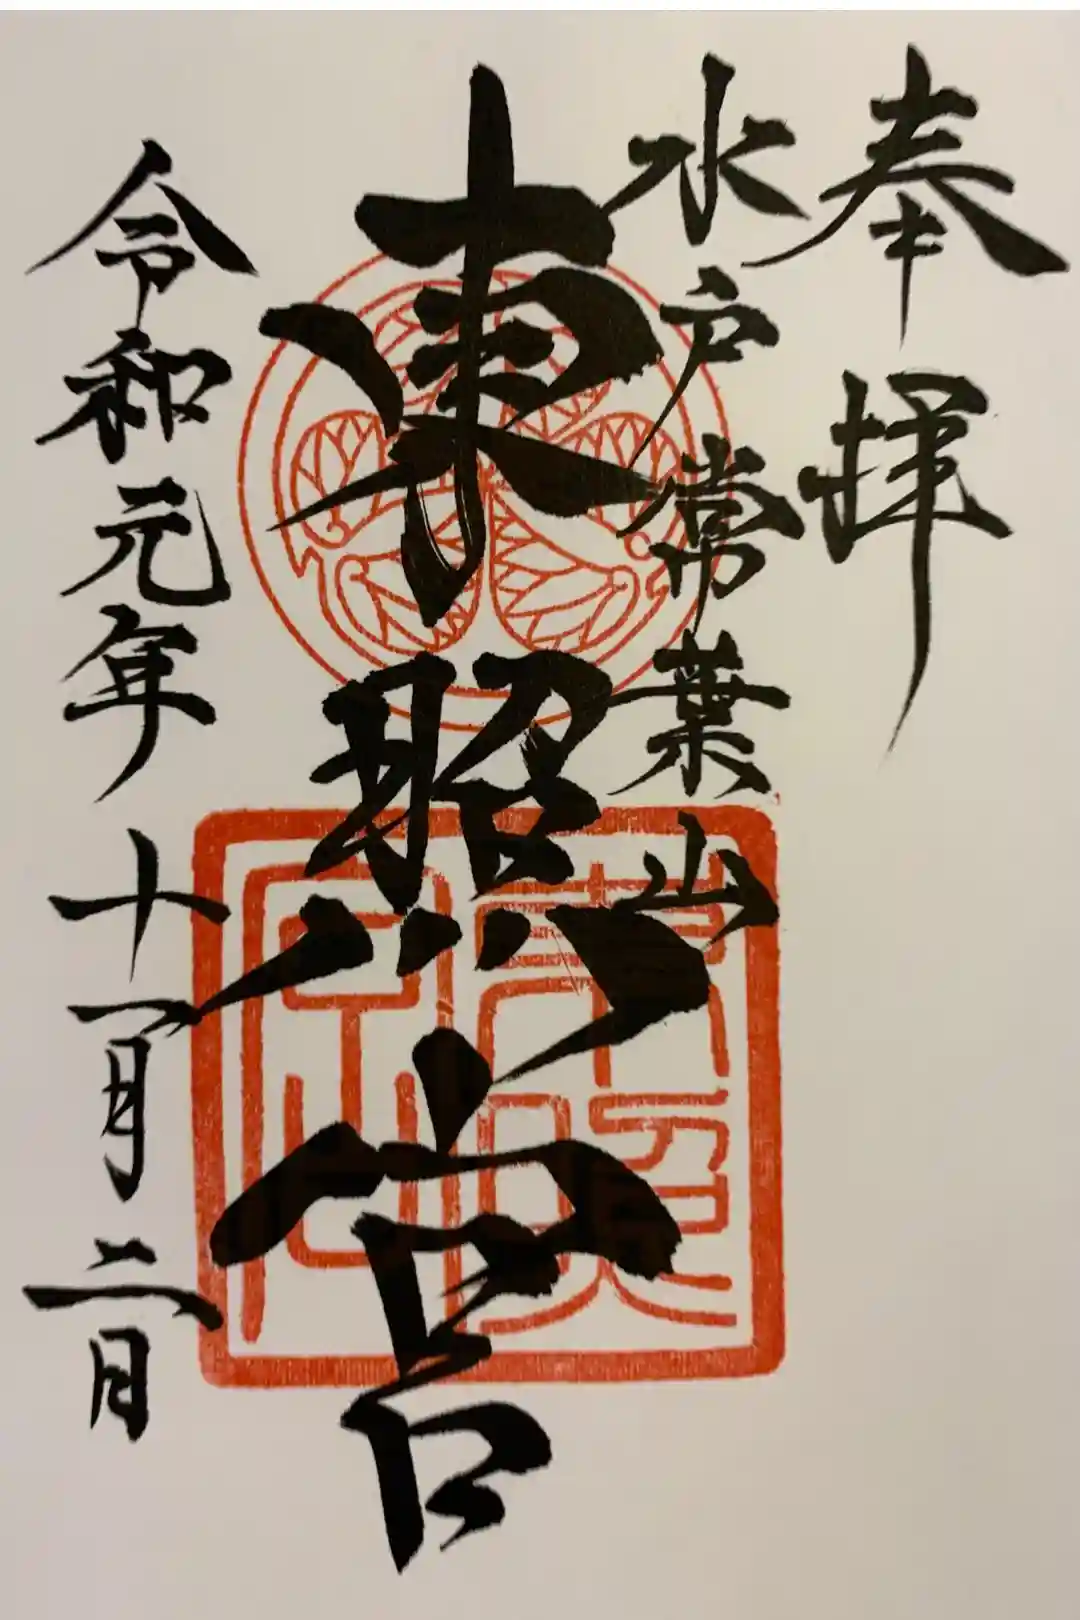 奉拝
水戸常葉山
東照宮
令和元年十一月二日